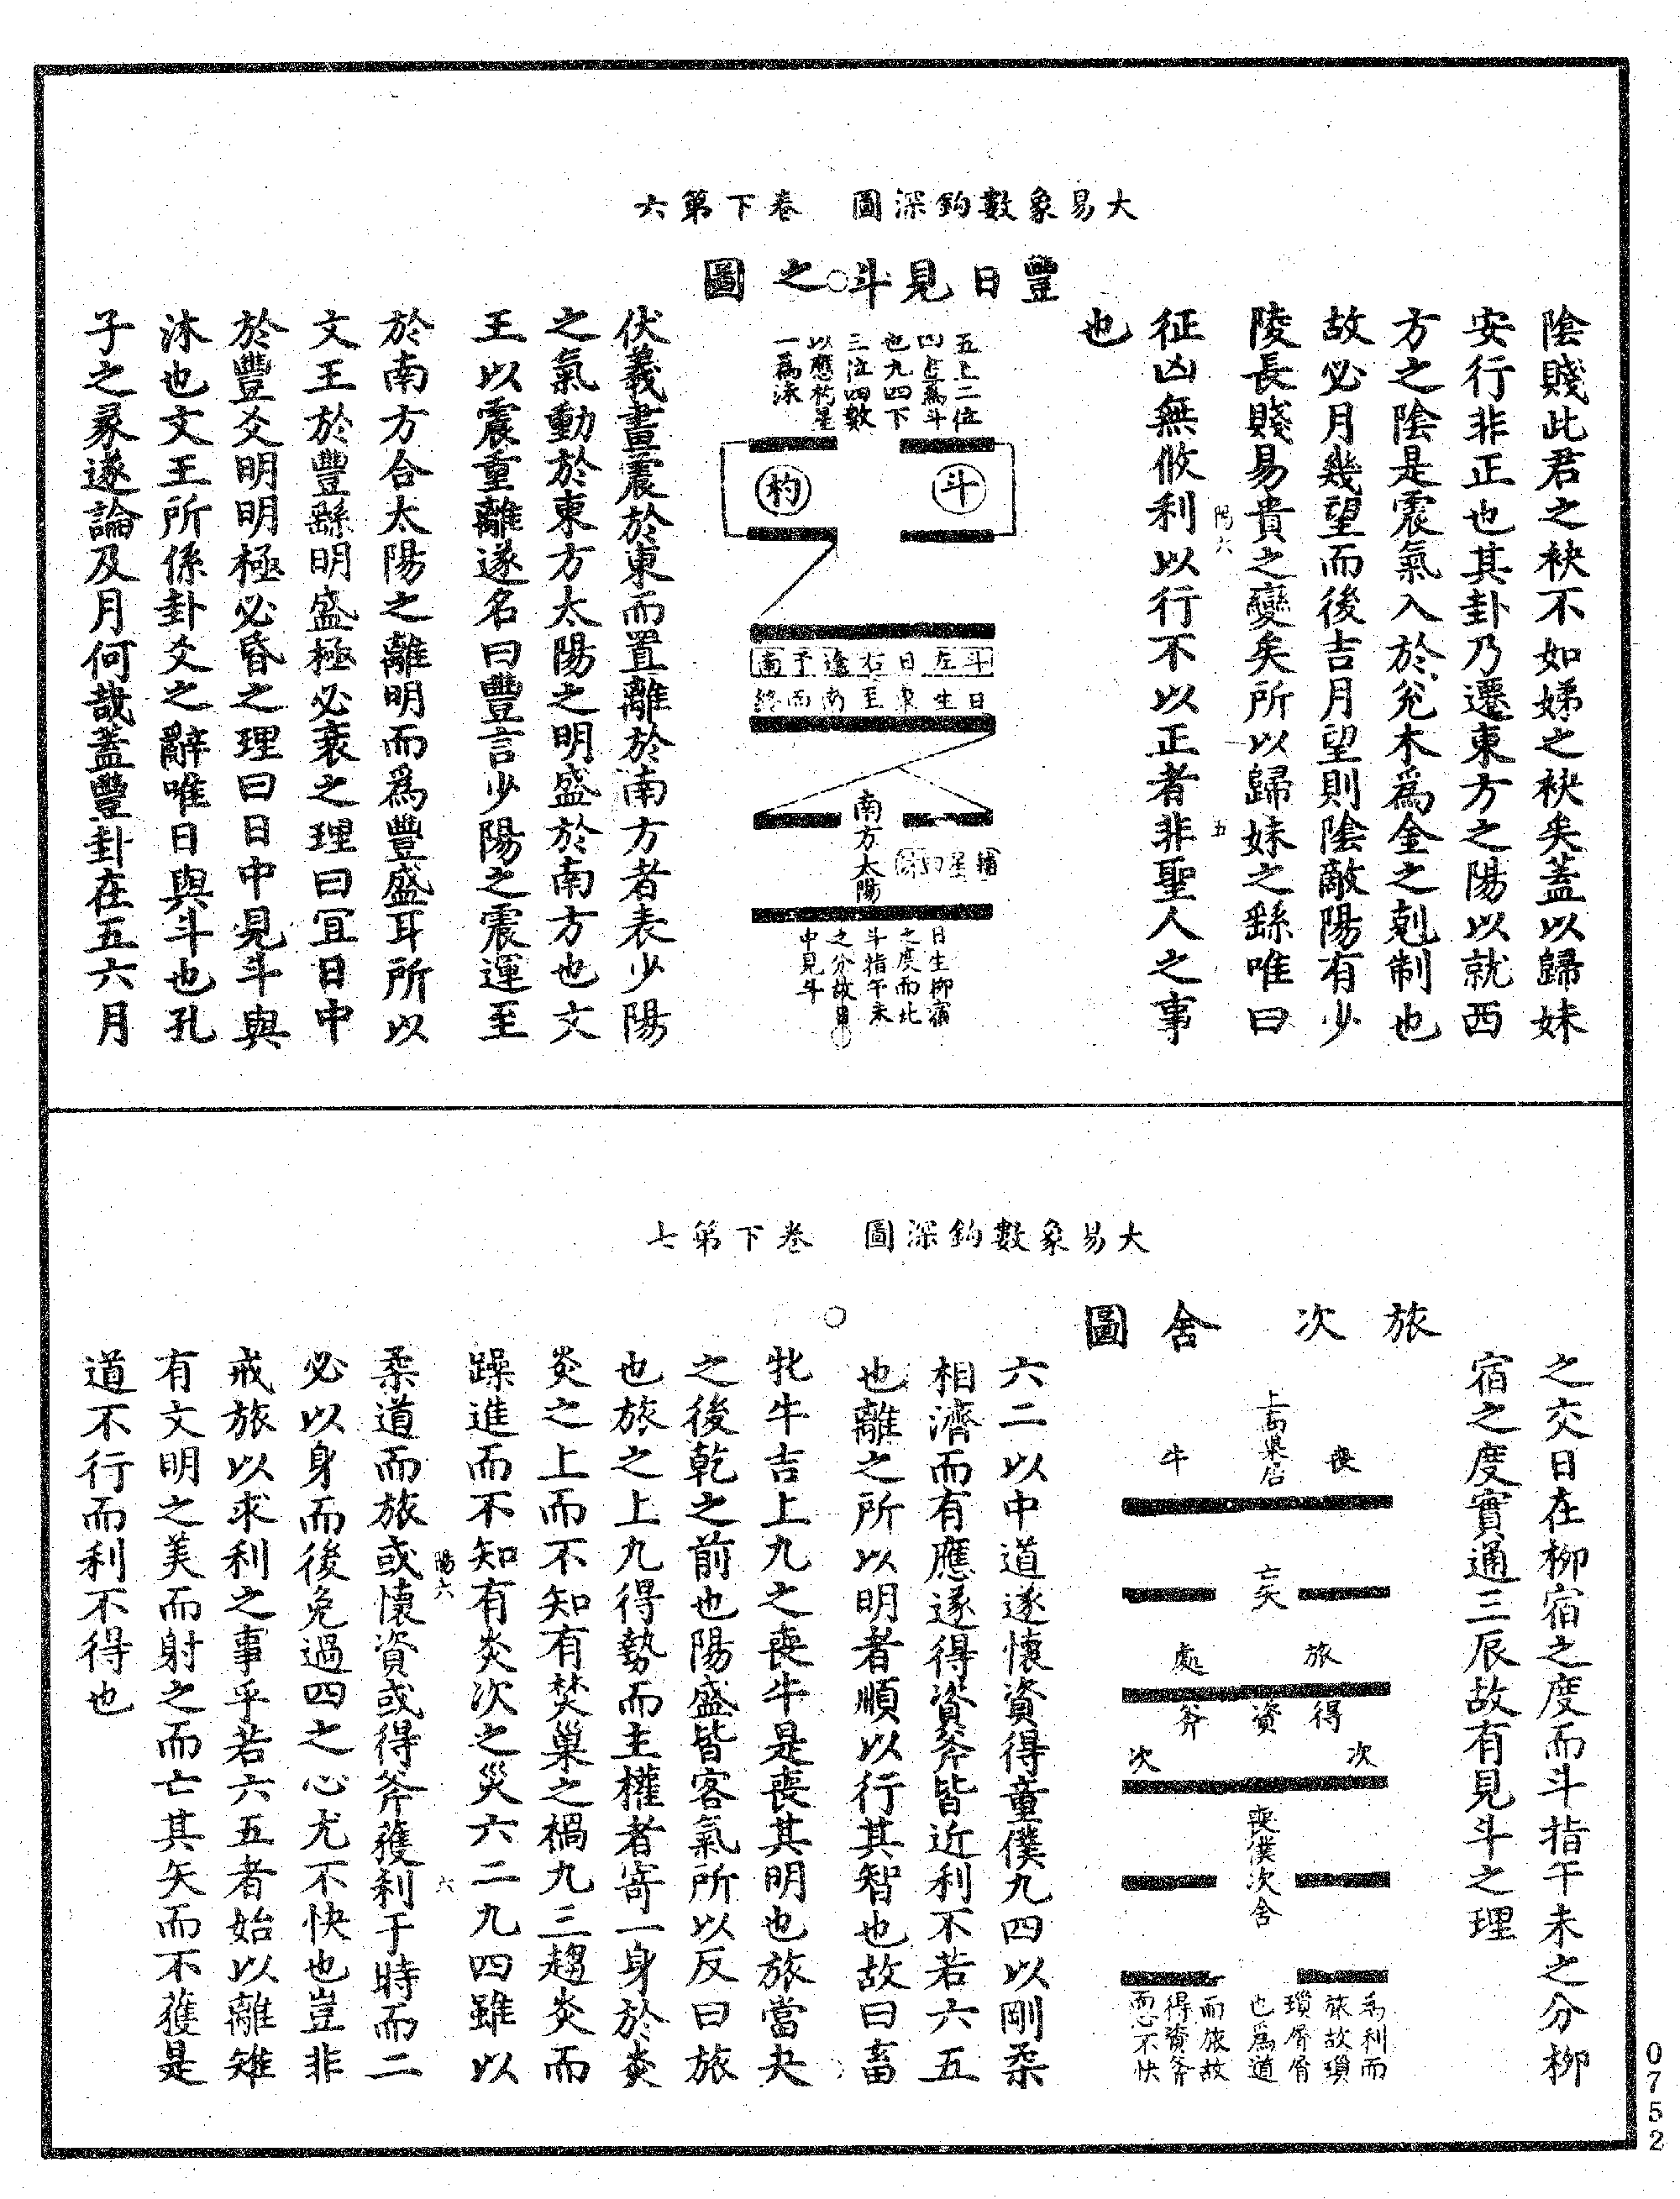 大易象數鈎深圖　卷下第六
陰賤此君之袂不如娣之袂矣蓋以歸妹
安行非正也其卦乃遷東方之陽以就西
方之陰是震氣入於兌木爲金之剋制也
故必月幾望而後吉月望則陰敵陽有少
陵長賤易貴之變矣所以歸妹之繇唯曰
陽六
五
征凶無攸利以行不以正者非聖人之事
也
豐日見斗之圖
五上二位
四上爲斗
也九四下
三泣四數
以應杓星
一爲沬
斗
杓
斗左日右逵于南
日生東至南而終
南方太陽
輔星
日生柳宿
之度而此
斗指午未
之分故日
中見斗
伏羲畫震於東而置離於南方者表少陽
之氣動於東方太陽之明盛於南方也文
王以震重離遂名曰豐言少陽之震運至
於南方合太陽之離明而爲豐盛耳所以
文王於豐繇明盛極必衰之理曰宜日中
於豐爻明明極必昏之理曰日中見斗與
沬也文王所係卦爻之辭唯日與斗也孔
子之彖遂論及月何哉蓋豐卦在五六月
大易象數鈎深圖　卷下第七
之交日在柳宿之度而斗指午未之分柳
宿之度實通三辰故有見斗之理
旅次舍圖
上高巢居
喪　牛
亡矢
旅　處
得資斧
次　次
喪僕次舍
爲利而
旅故瑣
瑣屑屑
也爲道
而旅故
得資斧
而心不快
六二以中道遂懷資得童僕九四以剛柔
相濟而有應遂得資斧皆近利不若六五
也離之所以明者順以行其智也故曰畜
牝牛吉上九之喪牛是喪其明也旅當夬
之後乾之前也陽盛皆客氣所以反曰旅
也旅之上九得勢而主權者寄一身於炎
炎之上而不知有焚巢之禍九三趨炎而
躁進而不知有炎次之災六二九四雖以
陽六
六
柔道而旅或懷資或得斧獲利于時而二
必以身而後免過四之心尤不快也豈非
戒旅以求利之事乎若六五者始以離雉
有文明之美而射之而亡其矢而不獲是
道不行而利不得也
0752